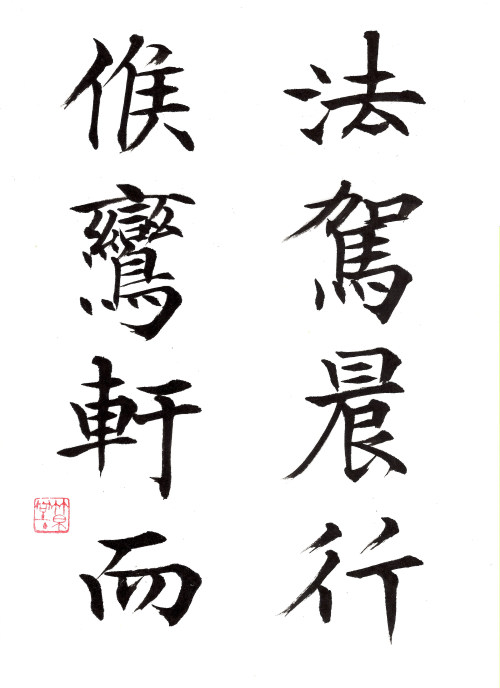 法駕晨行
候鸞軒而